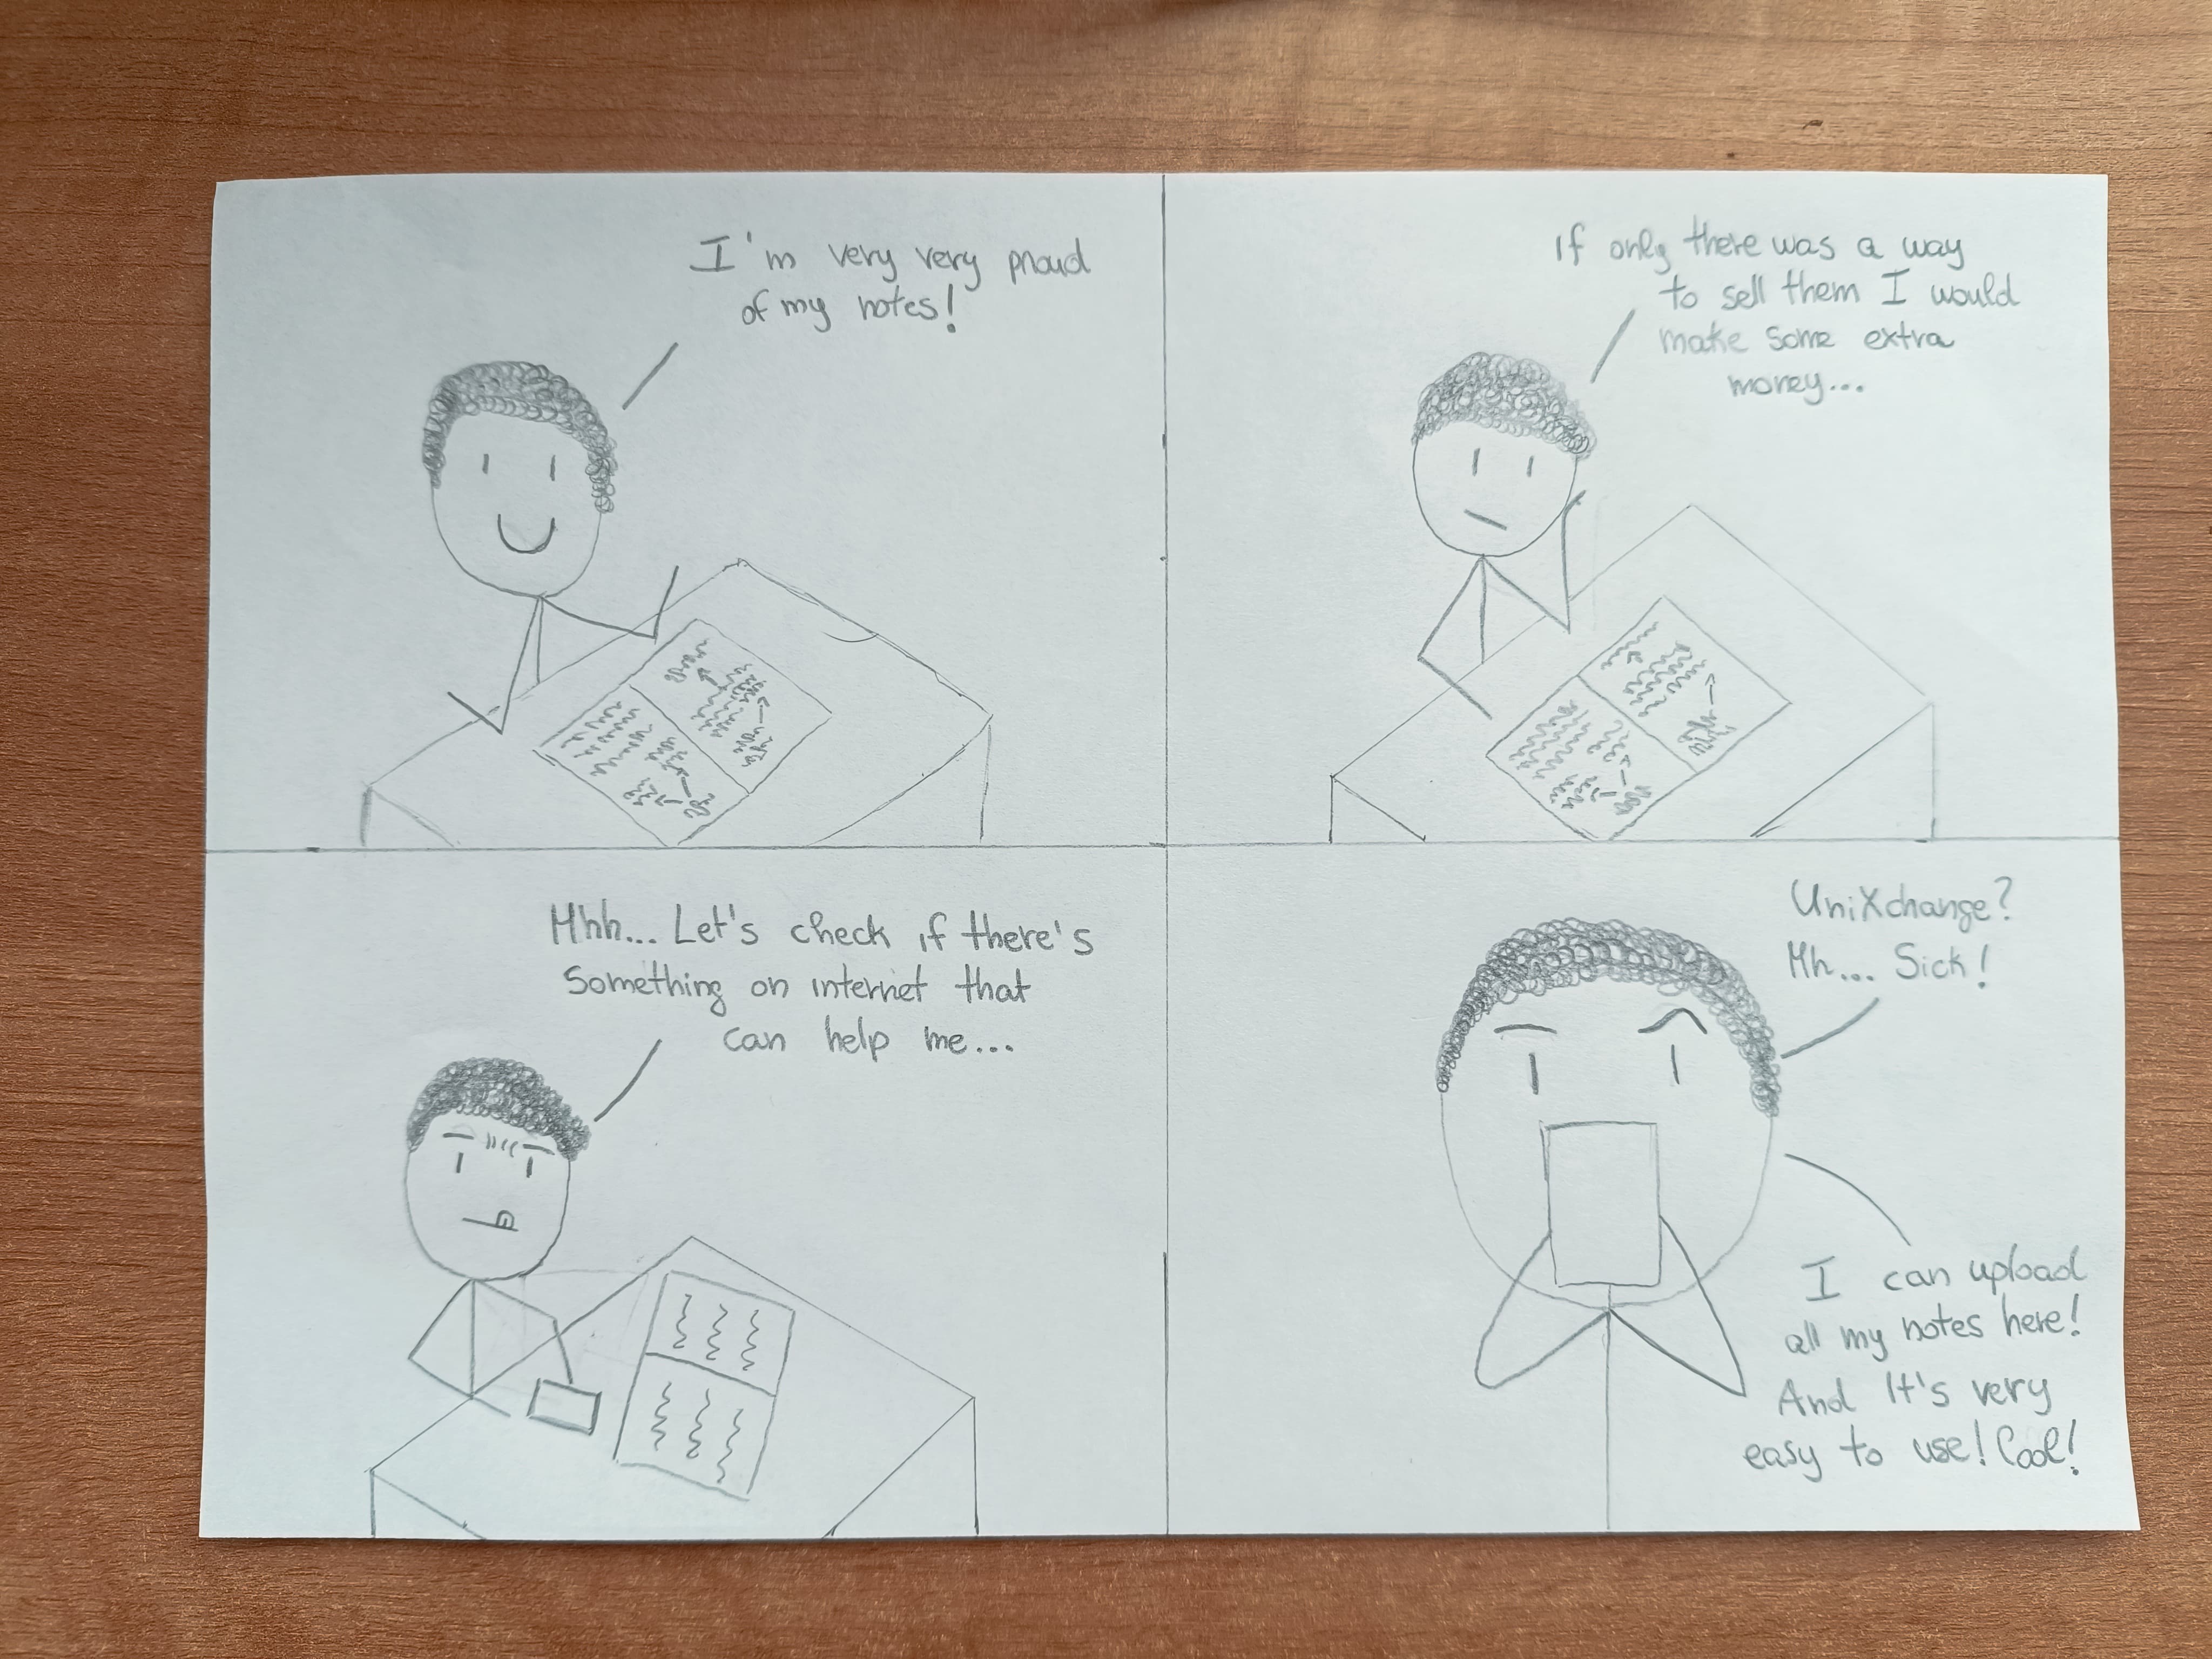 I'm very very proud
of my notes!
If only there was a way
to sell them I would
make some extra
money...
Mhh... Let's check if there's
something on internet that
can help me...
UniXchange?
Mh... Sick!
I can upload
all my notes here!
And It's very
easy to use! Cool!